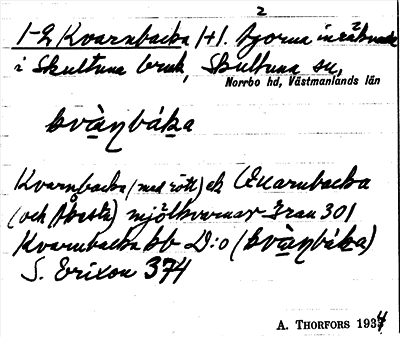 2
1-2 Kvarnbacka 1+1. Tjorna inräknade
i Skultuna bruk, Skultuna sn,
Norrbo hd, Västmanlands län
kvàn̥báka
Kvarnbacka (med rött) ek Qvarnbacka
(och Åbesta) mjölkvarnar Gran 301
Kvarnbacka bb D:o (kvàn̥báka)
S. Erixon 374
A. THORFORS 1934